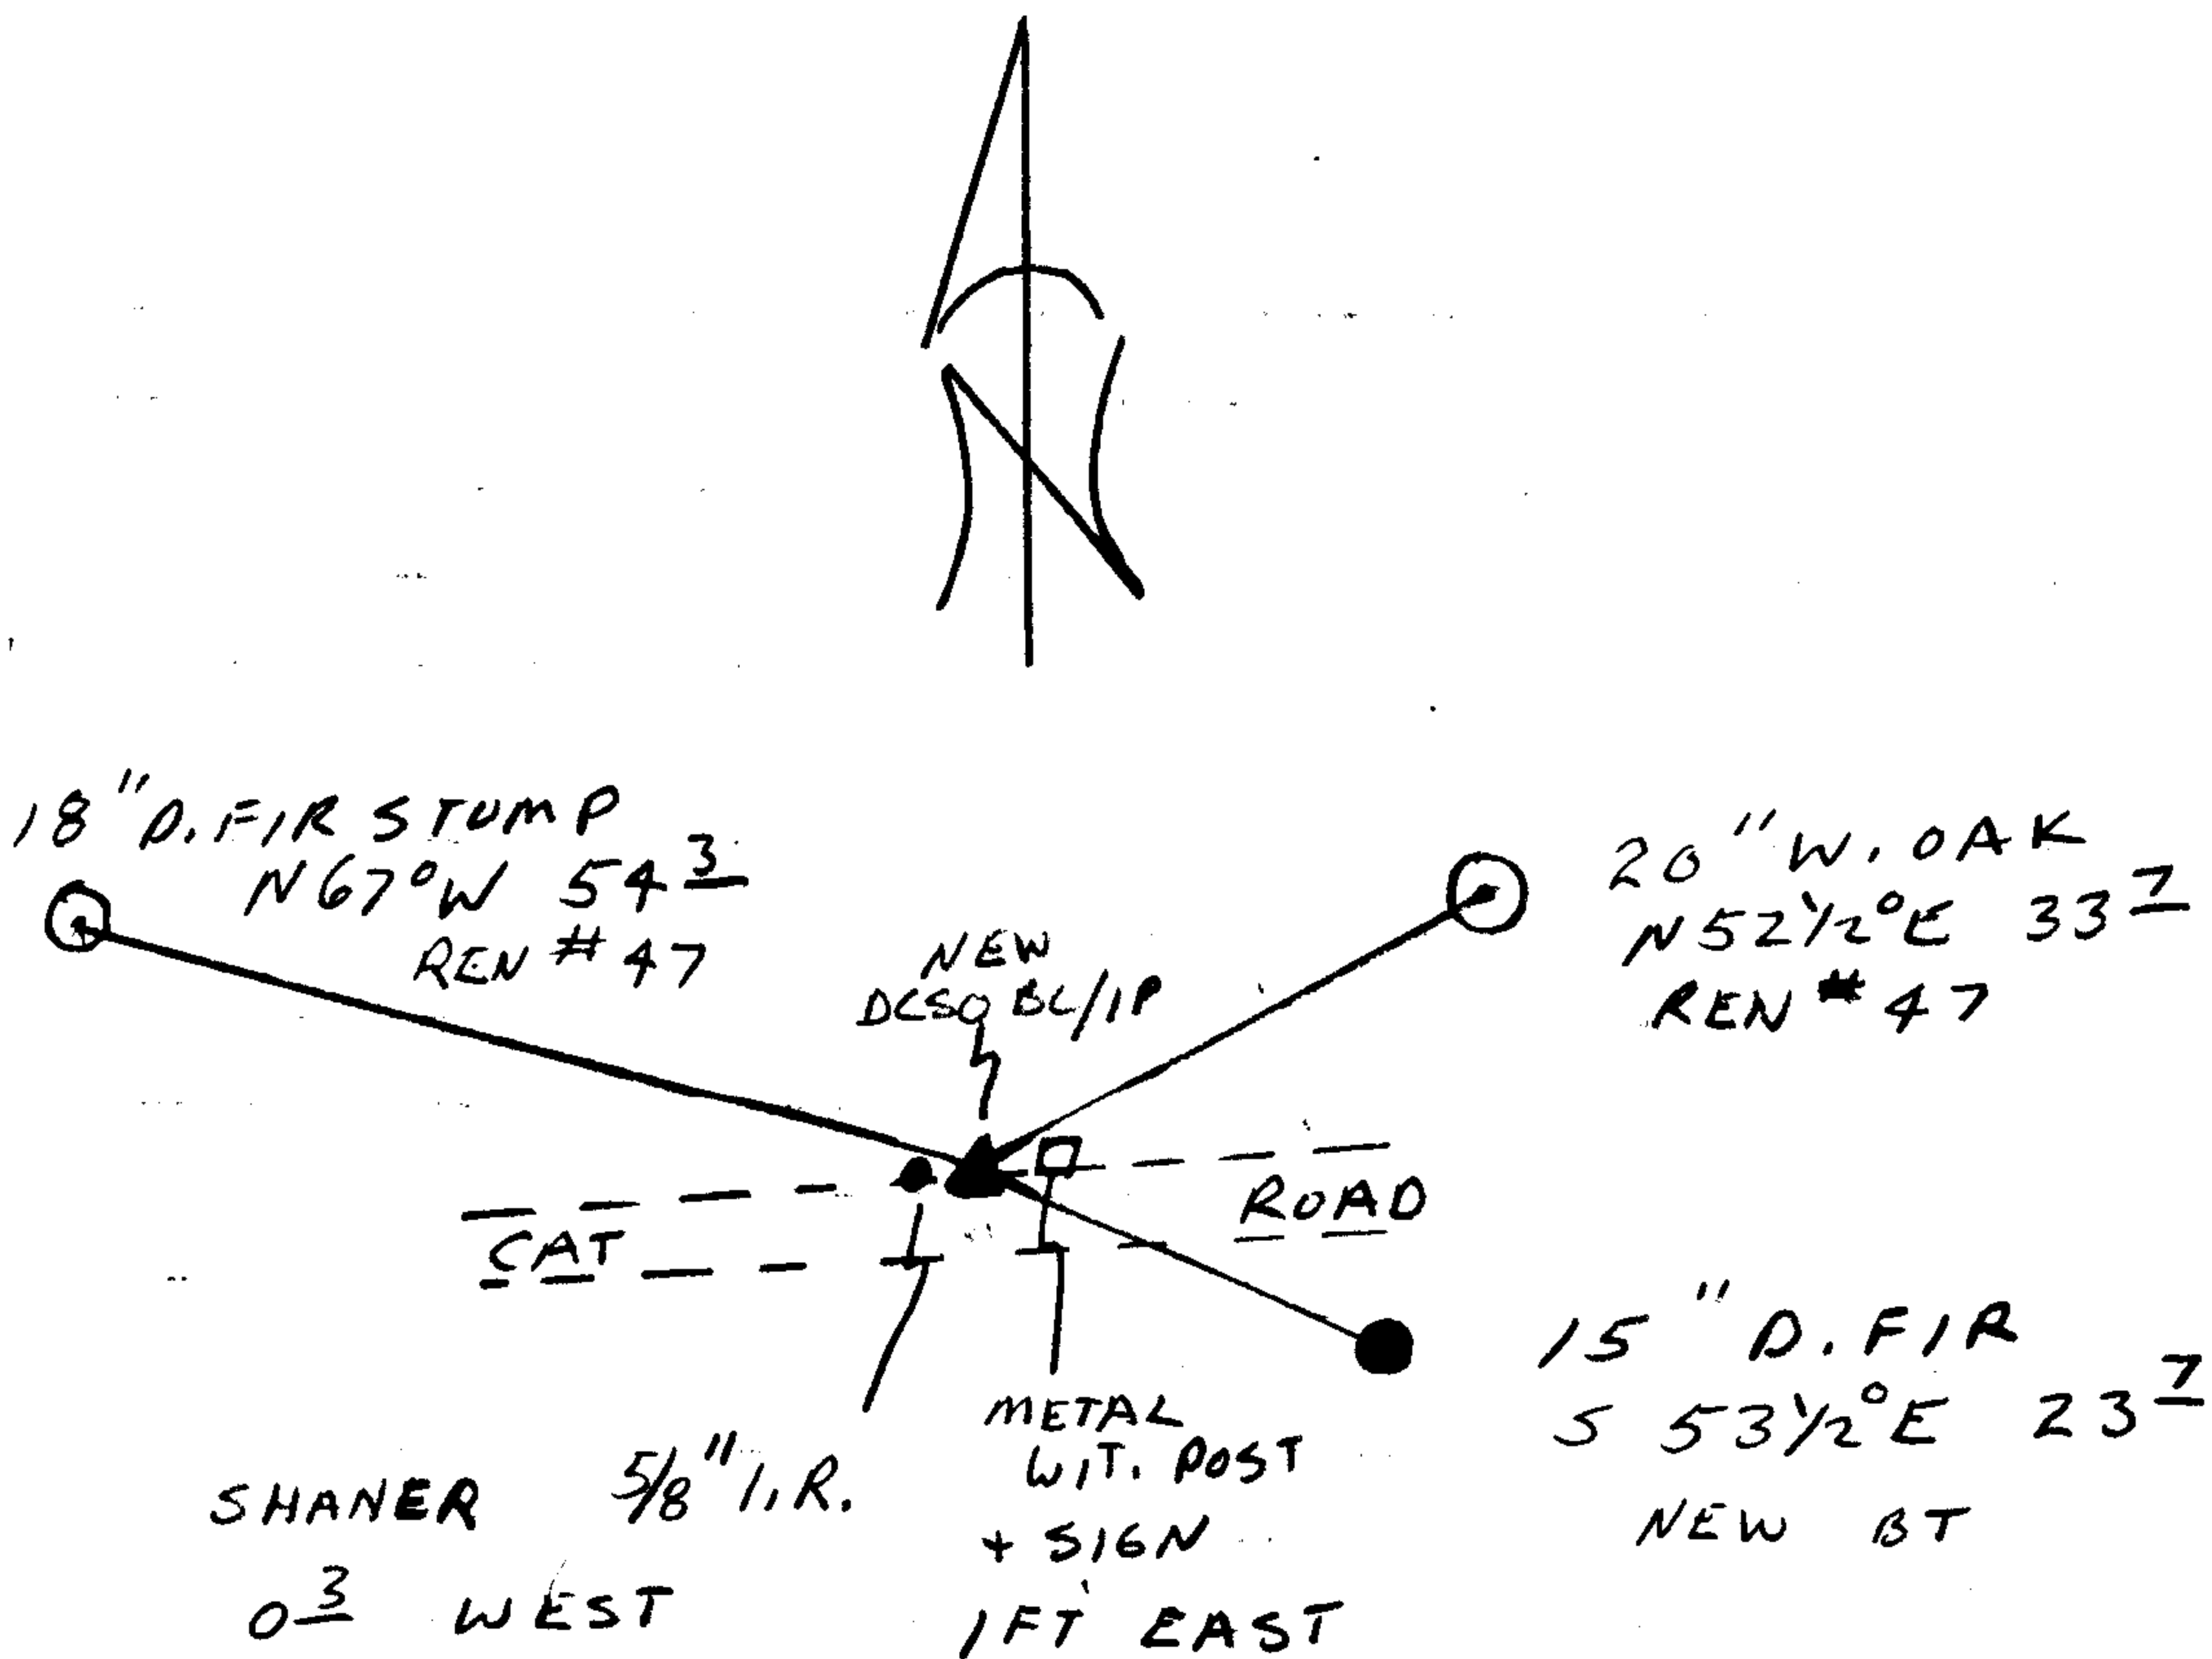 18" D. FIR STUMP
N 67° W 54 3
REN # 47
20" W. OAK
N 52 1/2° E 33 7
REN # 47
NEW
DCSO BC/IP
CAT
ROAD
15" D. FIR
S 53 1/2° E 23 7
NEW BT
SHANER 5/8" I.R.
0 3 WEST
METAL
WIT. POST
+ SIGN
1 FT EAST